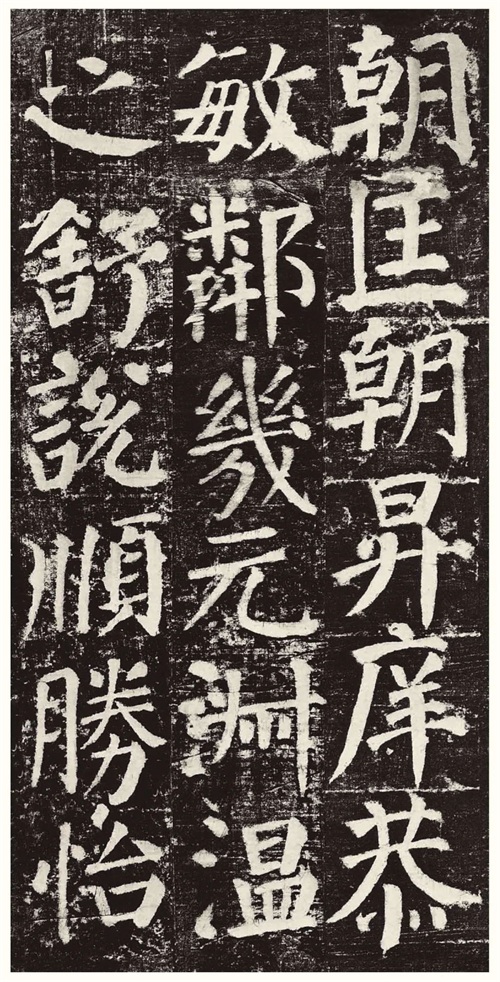 朝匡朝昇庠恭
敏鄰幾元淵温
之舒說順勝怡